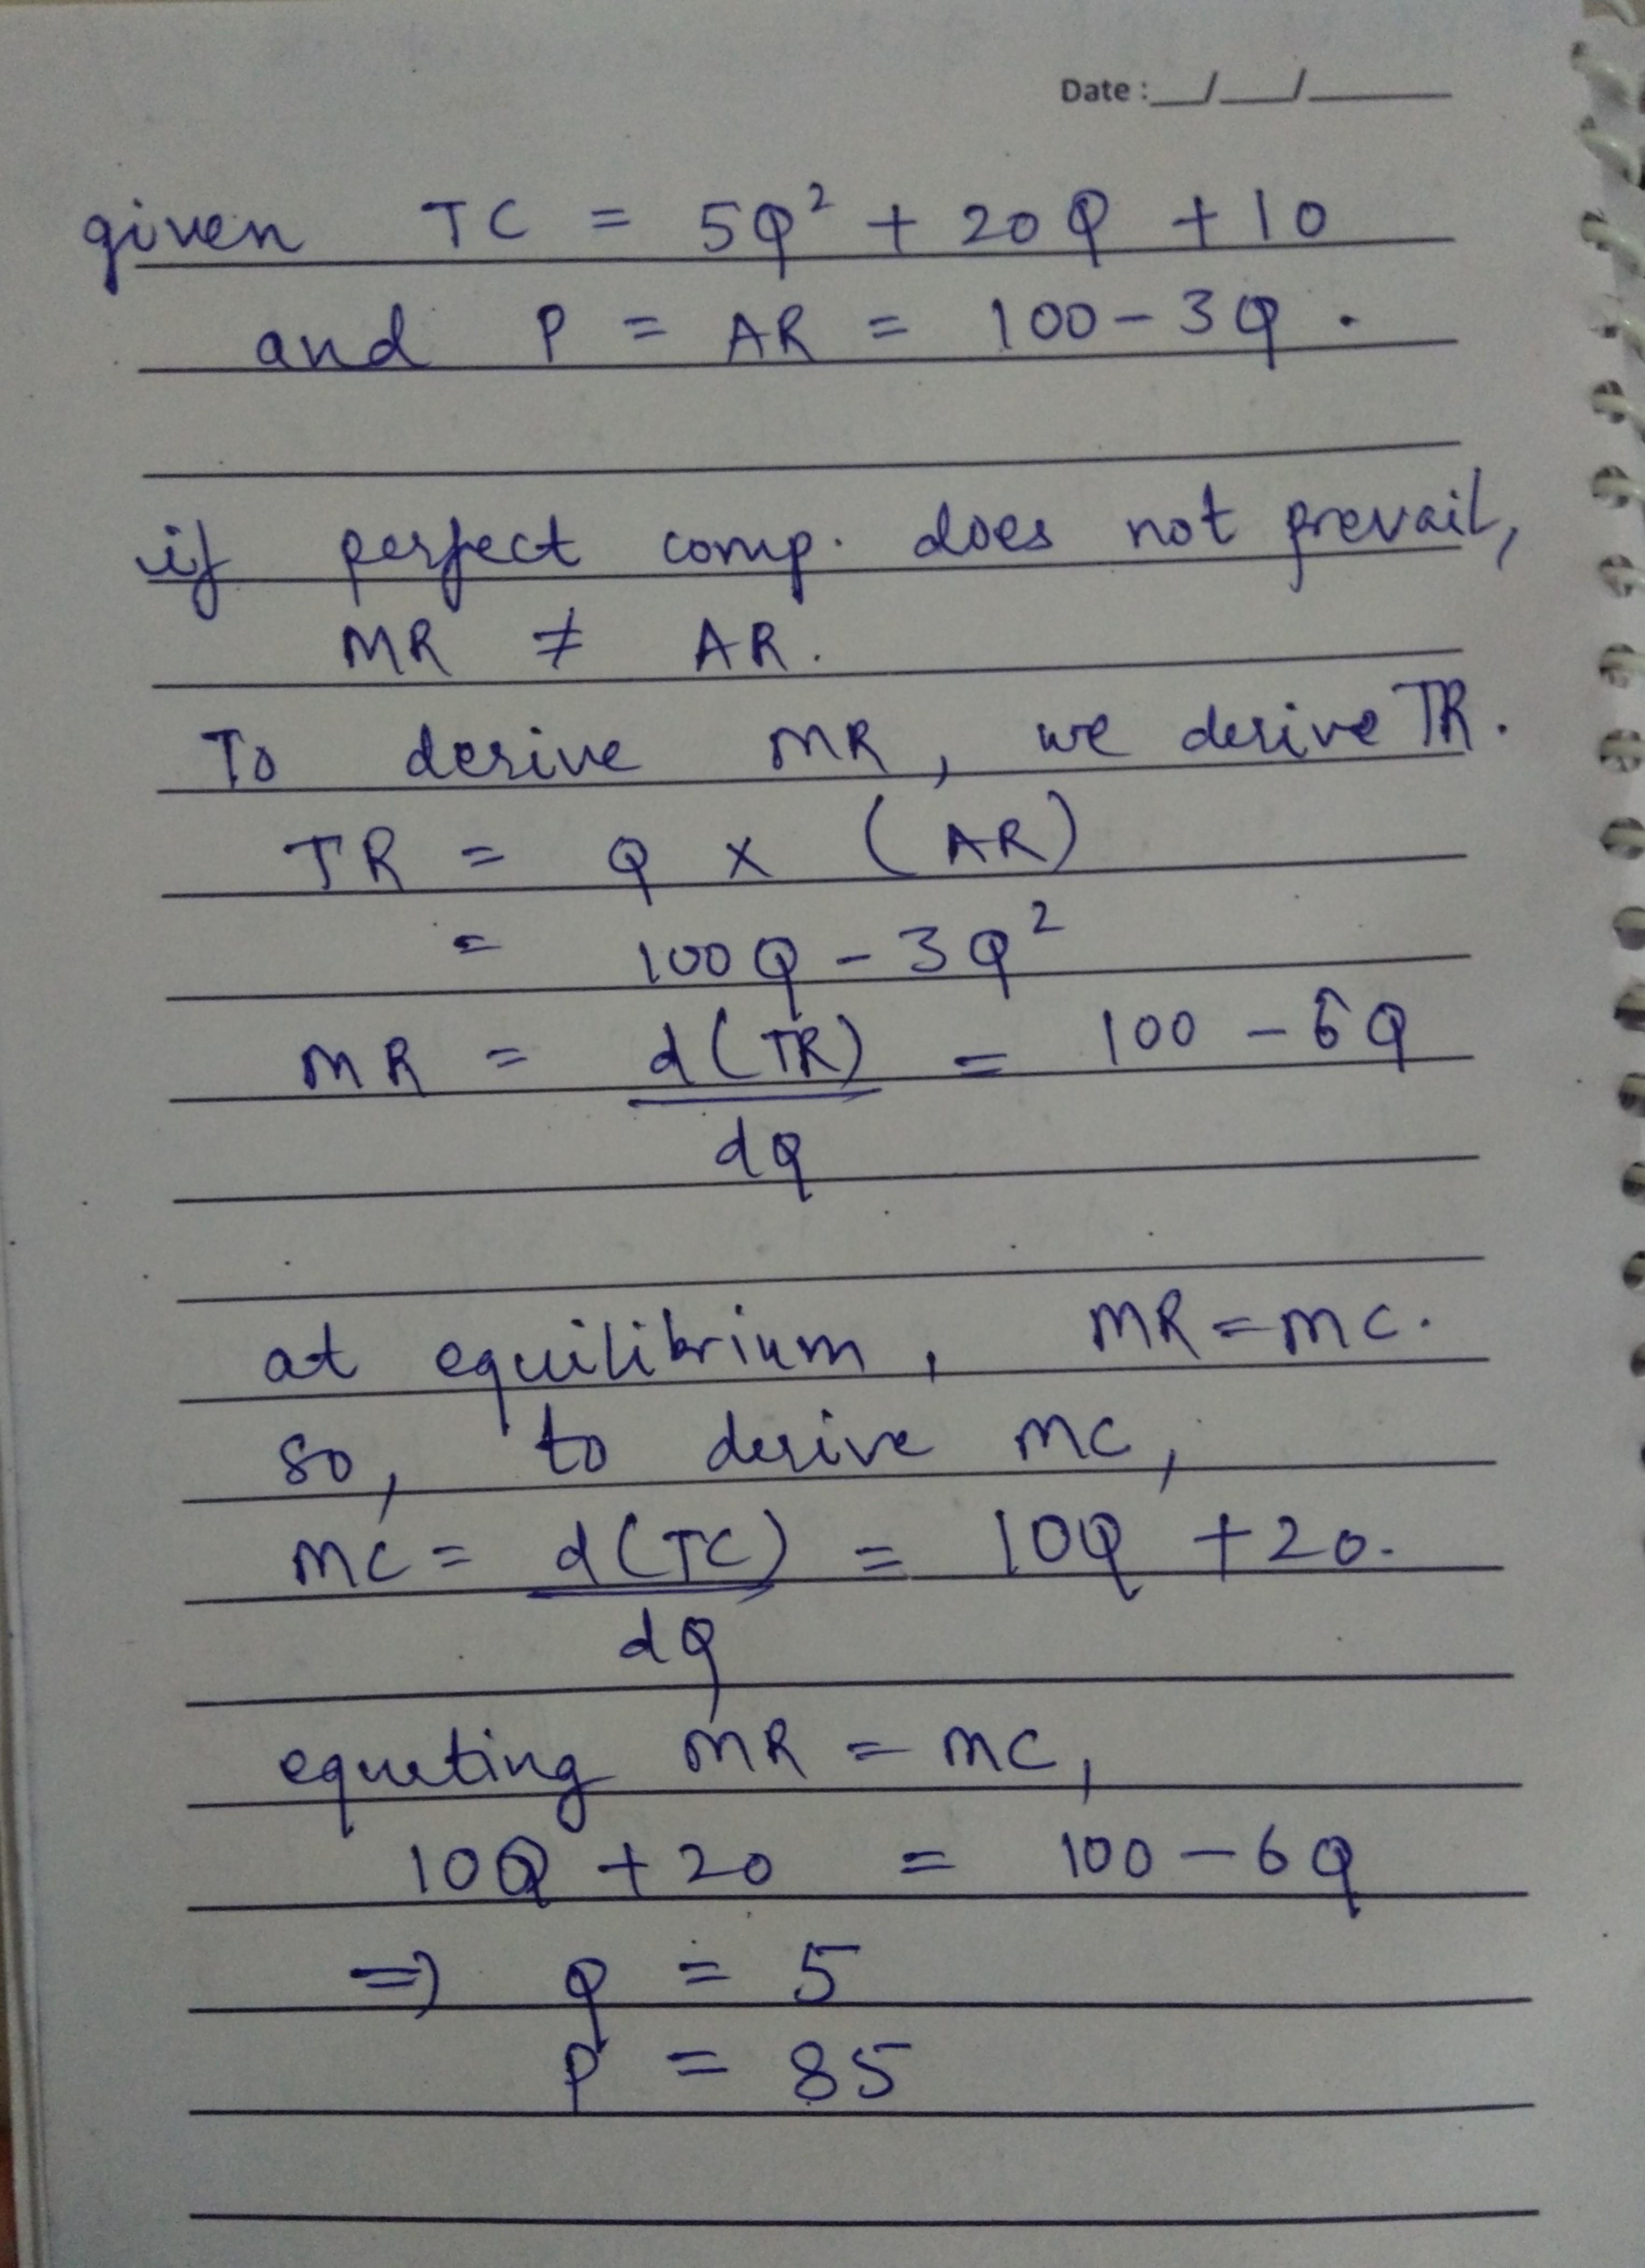 Date : __/__/____
given TC = 5Q² + 20Q + 10
and P = AR = 100 - 3Q.
if perfect comp. does not prevail,
MR ≠ AR.
To derive MR, we derive TR.
TR = Q × (AR)
= 100Q - 3Q²
MR = d(TR) = 100 - 6Q
dQ
at equilibrium, MR = MC.
so, to derive MC,
MC = d(TC) = 10Q + 20.
dQ
equating MR = MC,
10Q + 20 = 100 - 6Q
=> Q = 5
P = 85